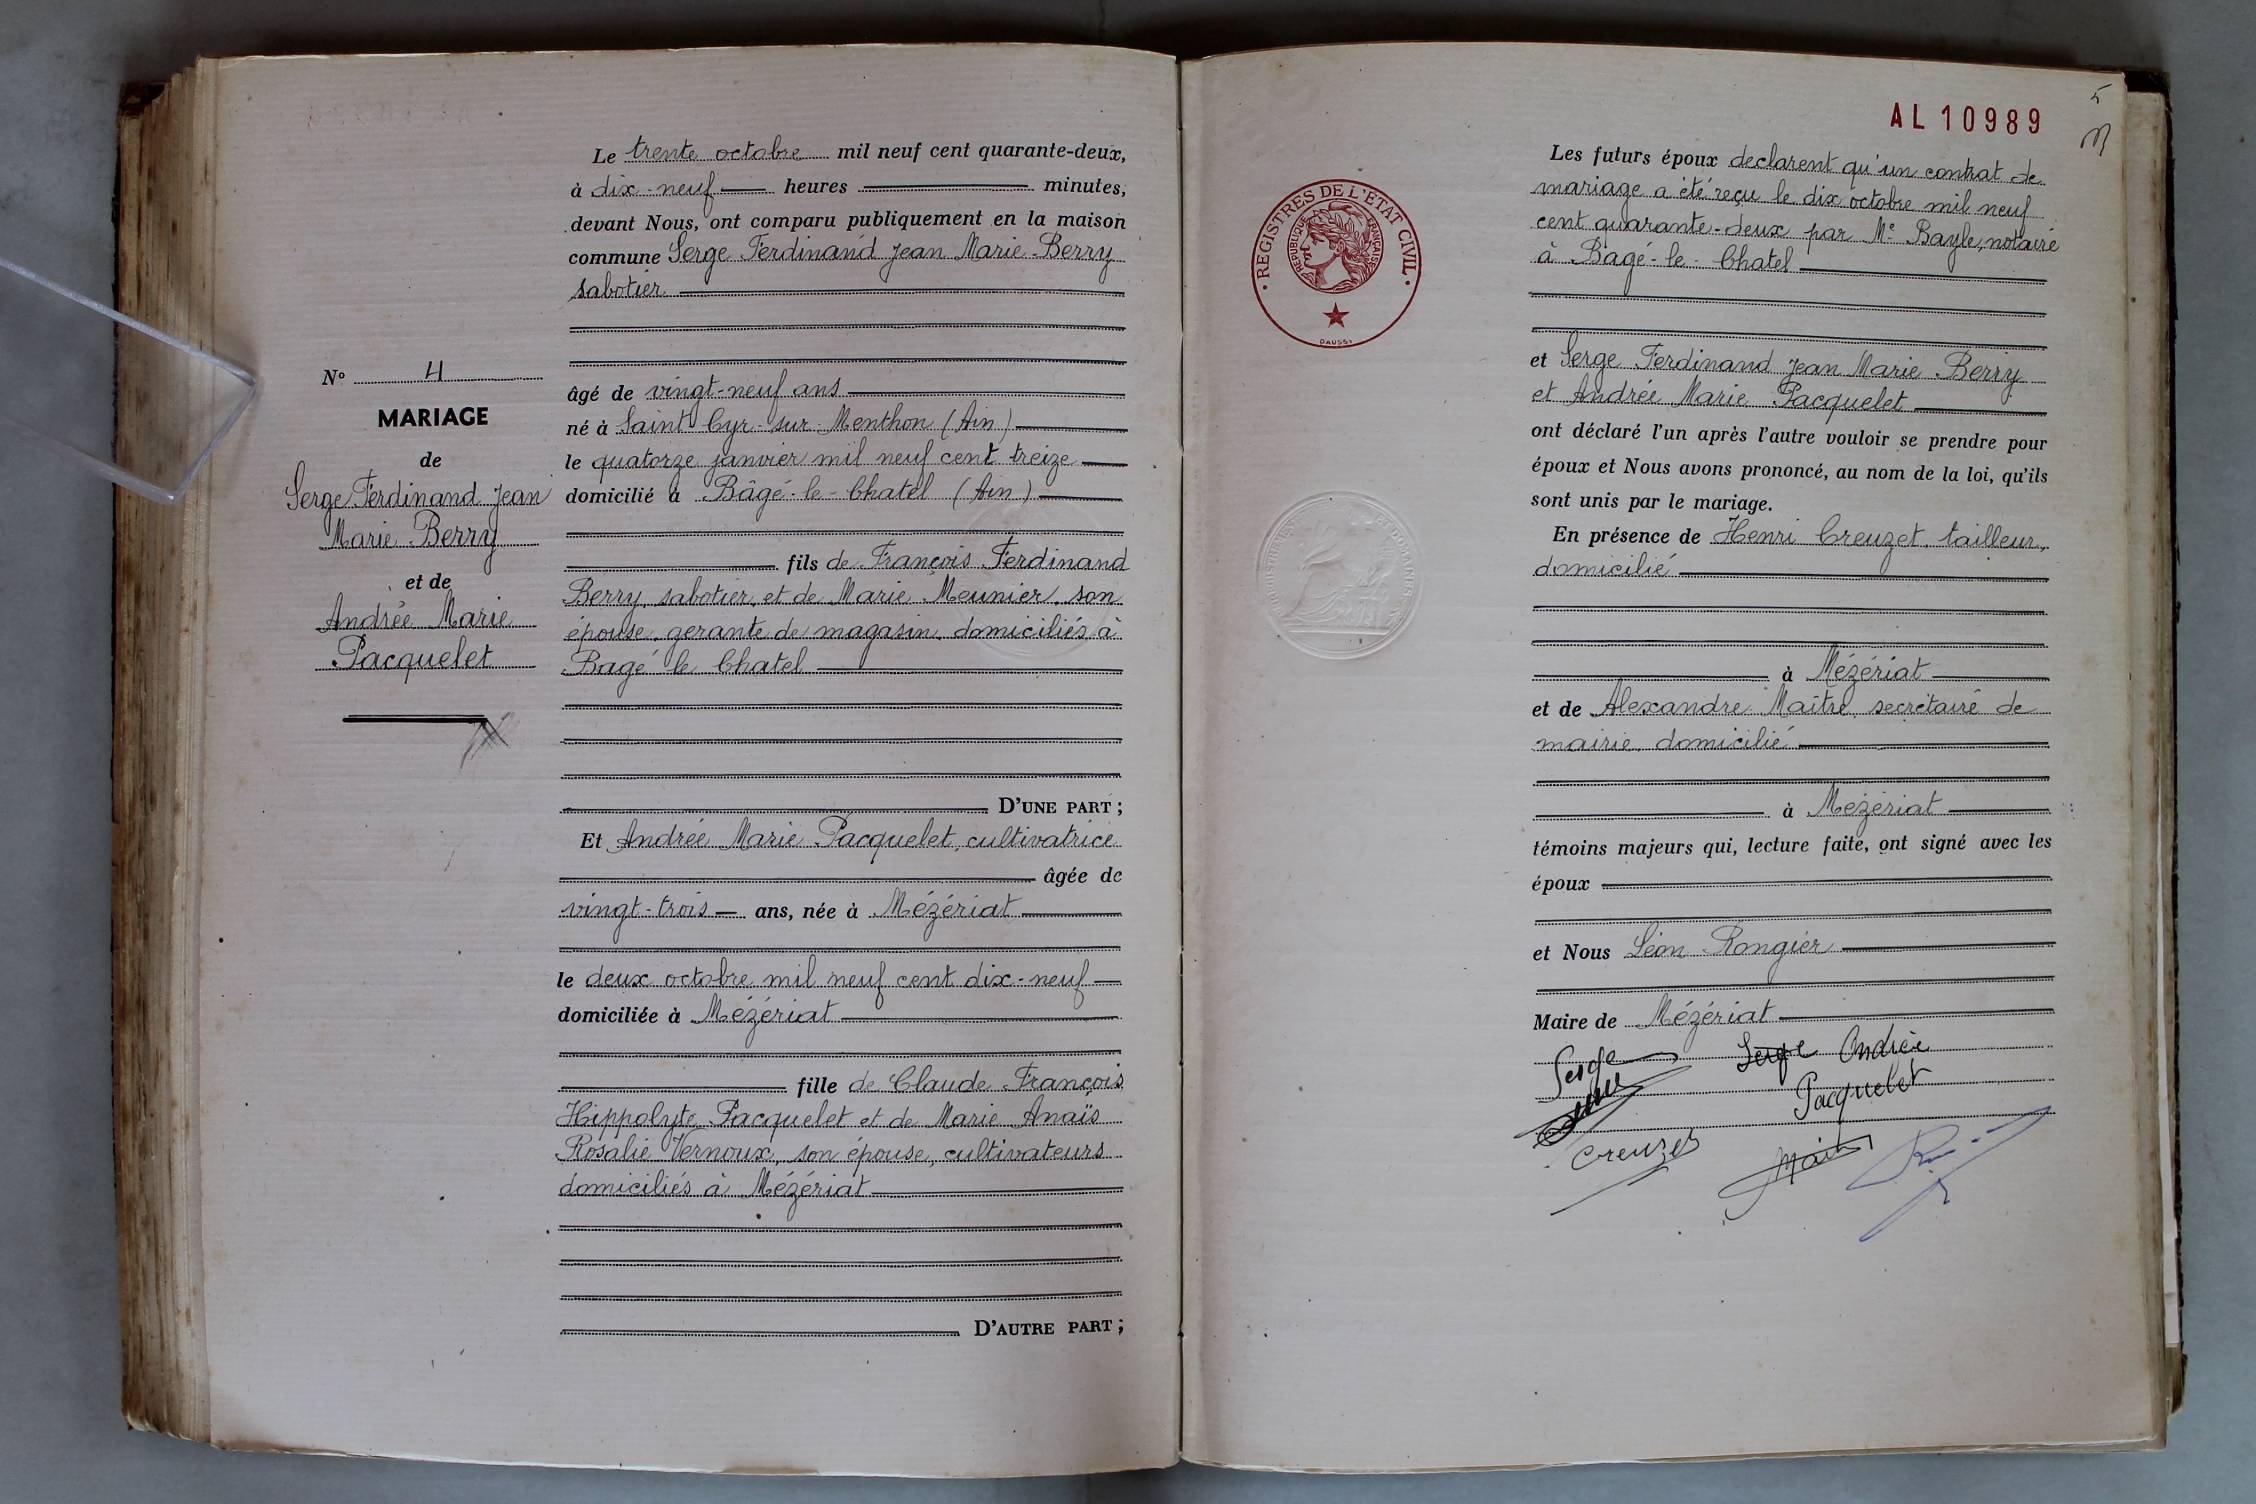 Le trente octobre mil neuf cent quarante-deux,
à dix-neuf heures minutes,
devant Nous, ont comparu publiquement en la maison
commune Serge Ferdinand Jean Marie Berry
sabotier
N° 4
MARIAGE
de
Serge Ferdinand Jean
Marie Berry
et de
Andrée Marie
Pacquelet
âgé de vingt-neuf ans
né à Saint Cyr-sur-Menthon (Ain)
le quatorze janvier mil neuf cent treize
domicilié à Bâgé-le-Chatel (Ain)
fils de François Ferdinand
Berry, sabotier, et de Marie Meunier, son
épouse, gerante de magasin, domiciliés à
Bagé le Chatel
D'UNE PART ;
Et Andrée Marie Pacquelet, cultivatrice
âgée de
vingt-trois ans, née à Mézériat
le deux octobre mil neuf cent dix-neuf
domiciliée à Mézériat
fille de Claude François
Hippolyte Pacquelet et de Marie Anaïs
Rosalie Vernoux, son épouse, cultivateurs
domiciliés à Mézériat
D'AUTRE PART ;
5
AL 10989
REGISTRES DE L'ÉTAT CIVIL
RÉPUBLIQUE FRANÇAISE
DAUSSY
Les futurs époux declarent qu'un contrat de
mariage a été reçu le dix octobre mil neuf
cent quarante-deux par Me Bayle, notaire
à Bagé-le-Chatel
et Serge Ferdinand Jean Marie Berry
et Andrée Marie Pacquelet
ont déclaré l'un après l'autre vouloir se prendre pour
époux et Nous avons prononcé, au nom de la loi, qu'ils
sont unis par le mariage.
En présence de Henri Creuzet, tailleur,
domicilié
à Mézériat
et de Alexandre Maître, secrétaire de
mairie, domicilié
à Mézériat
témoins majeurs qui, lecture faite, ont signé avec les
époux
et Nous Léon Rongier
Maire de Mézériat
Serge Serge Andrée
Berry Pacquelet
Creuzet Maitre